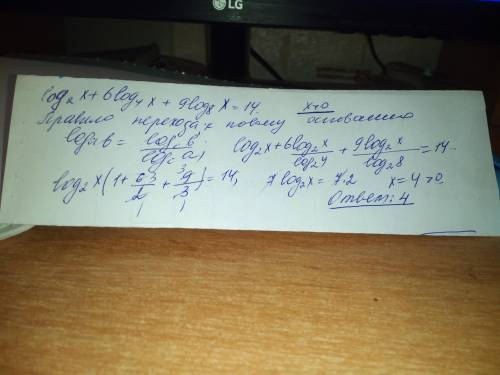 LG
log₂x + 6log₄x + 9log₈x = 14. x>0
Правило перехода к новому основанию
logₐb = log_c b / log_c a; log₂x + 6log₂x / log₂4 + 9log₂x / log₂8 = 14.
log₂x (1 + 6/2 + 9/3) = 14, 7log₂x = 7·2 x = 4 >0.
Ответ: 4